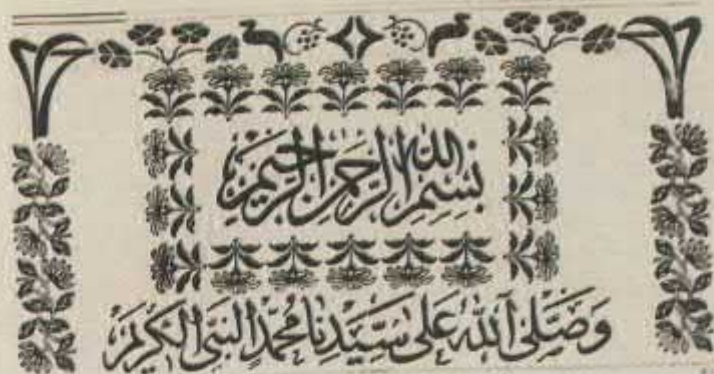 بِسْمِ اللهِ الرَّحْمَنِ الرَّحِيمِ
وَصَلَّى اللهُ عَلَى سَيِّدِنَا مُحَمَّدٍ النَّبِيِّ الْكَرِيمِ